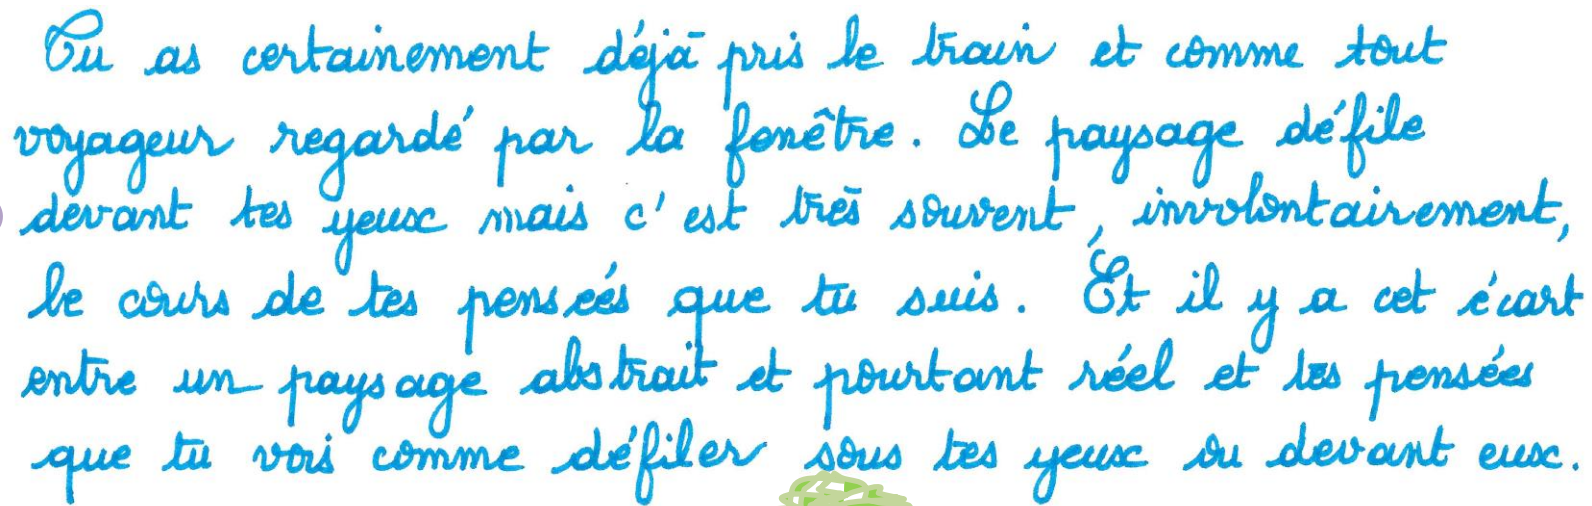 Tu as certainement déjà pris le train et comme tout
voyageur regardé par la fenêtre. Le paysage défile
devant tes yeux mais c'est très souvent, involontairement,
le cours de tes pensées que tu suis. Et il y a cet écart
entre un paysage abstrait et pourtant réel et tes pensées
que tu vois comme défiler sous tes yeux ou devant eux.